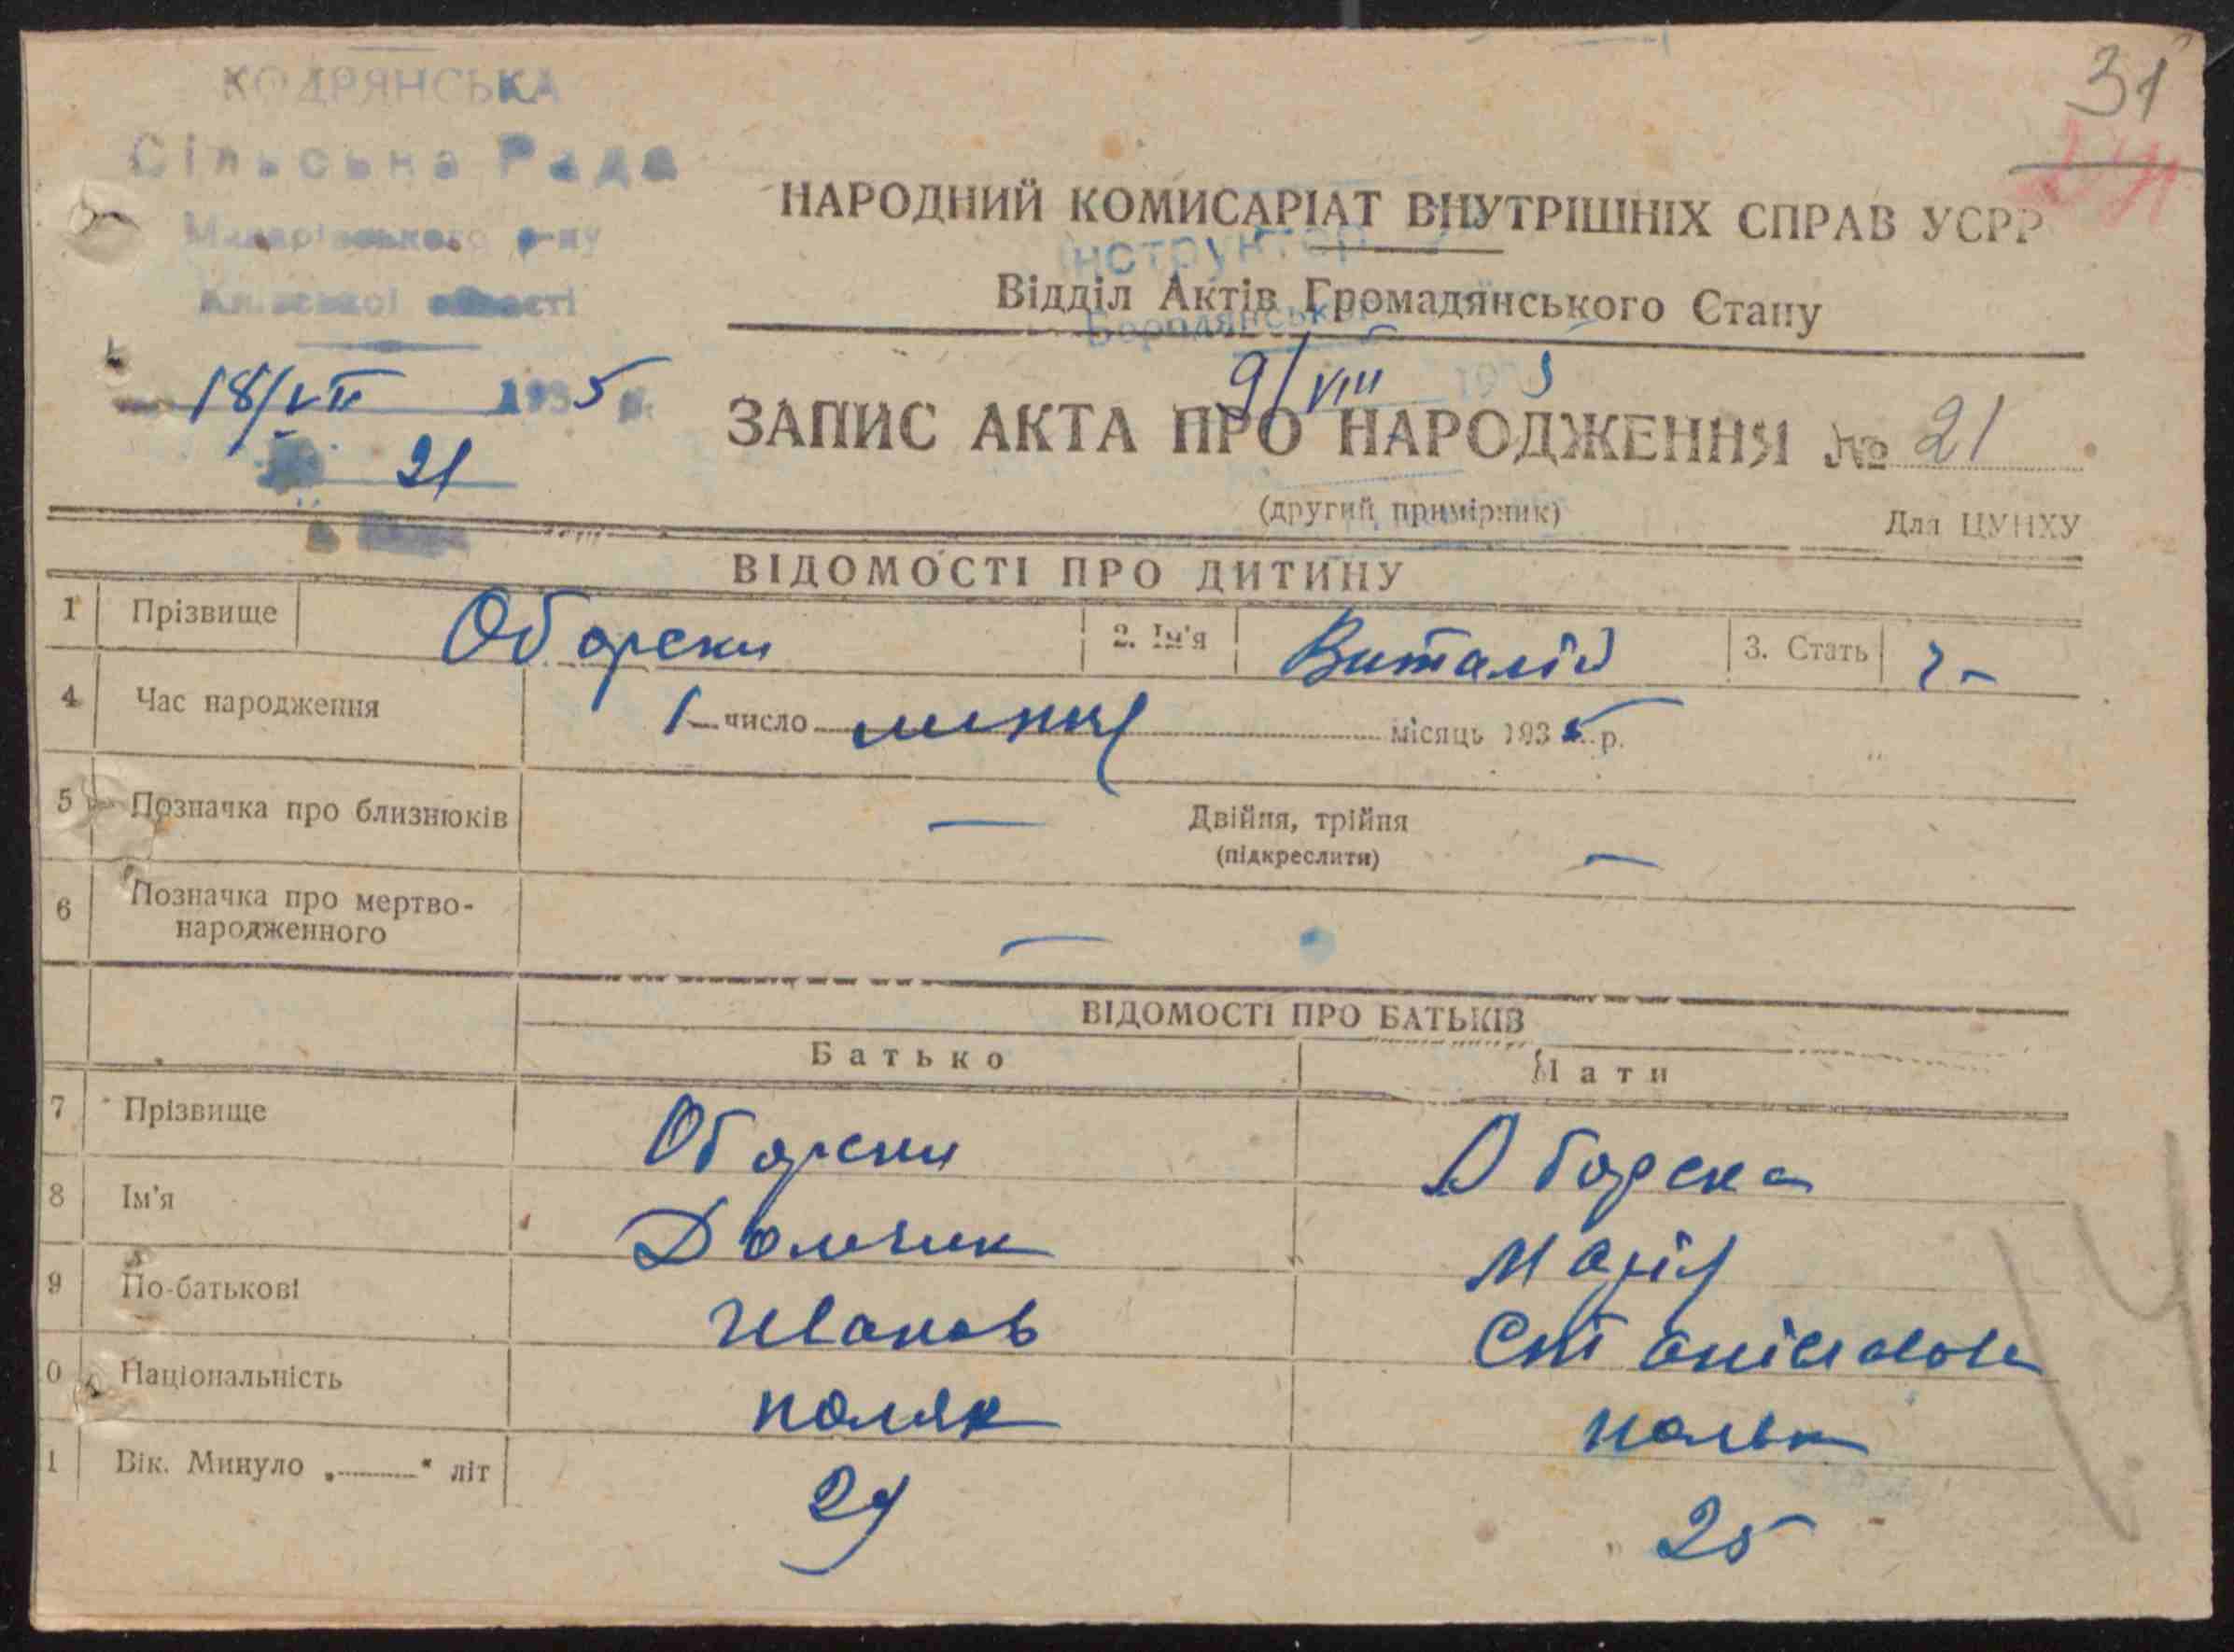 31
КОДРЯНСЬКА
Сільська Рада
Макарівського р-ну
Київської області
18/VII 1935 р.
21
НАРОДНИЙ КОМИСАРІАТ ВНУТРІШНІХ СПРАВ УСРР
Інструктор
Відділ Актів Громадянського Стану
Бородянськ
9/VIII 1935
ЗАПИС АКТА ПРО НАРОДЖЕННЯ № 21
(другий примірник) Для ЦУНХУ
ВІДОМОСТІ ПРО ДИТИНУ
1 Прізвище Оборски 2. Ім'я Виталій 3. Стать ч-
4 Час народження 1 число липня місяць 1935 р.
5 Позначка про близнюків — Двійня, трійня —
(підкреслити)
6 Позначка про мертво-
народженного —
ВІДОМОСТІ ПРО БАТЬКІВ
Батько Мати
7 Прізвище Оборски Оборска
8 Ім'я Марія
9 По-батькові Иванов
0 Національність поляк польк
1 Вік. Минуло „ " літ 29 25
14